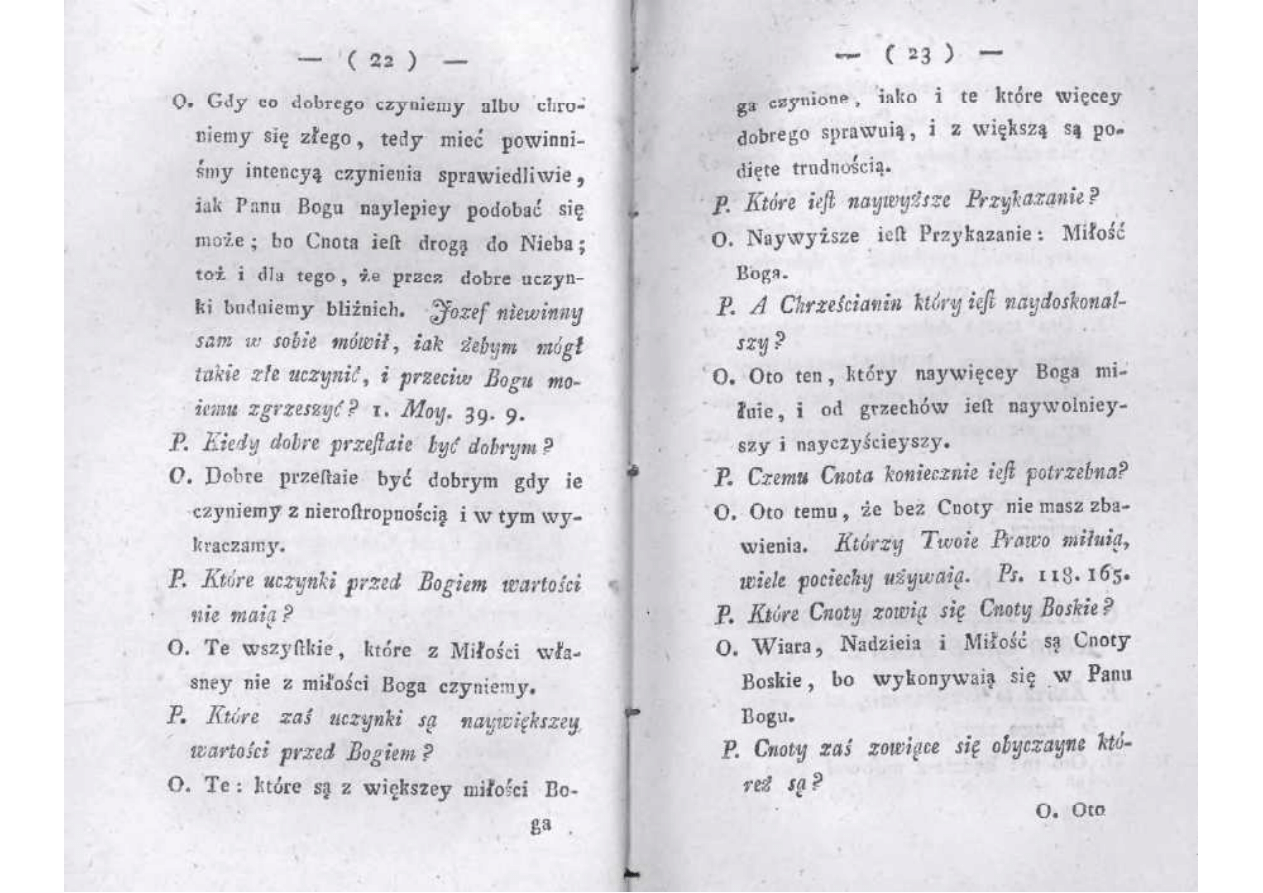 — ( 22 ) —
O. Gdy co dobrego czyniemy albo chro-
niemy się złego, tedy mieć powinni-
śmy intencyą czynienia sprawiedliwie,
iak Panu Bogu naylepiey podobać się
może; bo Cnota ieſt drogą do Nieba;
toż i dla tego, że przez dobre uczyn-
ki buduiemy bliźnich. Jozef niewinny
sam w sobie mówił, iak żebym mógł
takie złe uczynić, i przeciw Bogu mo-
iemu zgrzeszyć? 1. Moy. 39. 9.
P. Kiedy dobre przeſtaie być dobrym?
O. Dobre przeſtaie być dobrym gdy ie
czyniemy z nieroſtropnością i w tym wy-
kraczamy.
P. Które uczynki przed Bogiem wartości
nie maią?
O. Te wszyſtkie, które z Miłości wła-
sney nie z miłości Boga czyniemy.
P. Które zaś uczynki są naywiększey
wartości przed Bogiem?
O. Te: które są z większey miłości Bo-
ga
— ( 23 ) —
ga czynione, iako i te które więcey
dobrego sprawuią, i z większą są po-
dięte trudnością.
P. Które ieſt naywyższe Przykazanie?
O. Naywyższe ieſt Przykazanie: Miłość
Boga.
P. A Chrześcianin który ieſt naydoskonal-
szy?
O. Oto ten, który naywięcey Boga mi-
łuie, i od grzechów ieſt naywolniey-
szy i nayczyścieyszy.
P. Czemu Cnota koniecznie ieſt potrzebna?
O. Oto temu, że bez Cnoty nie masz zba-
wienia. Którzy Twoie Prawo miłuią,
wiele pociechy używaią. Ps. 118. 165.
P. Które Cnoty zowią się Cnoty Boskie?
O. Wiara, Nadzieia i Miłość są Cnoty
Boskie, bo wykonywaią się w Panu
Bogu.
P. Cnoty zaś zowiące się obyczayne któ-
reż są?
O. Oto